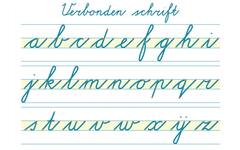 Verbonden schrift
a b c d e f g h i
j k l m n o p q r
s t u v w x ij z